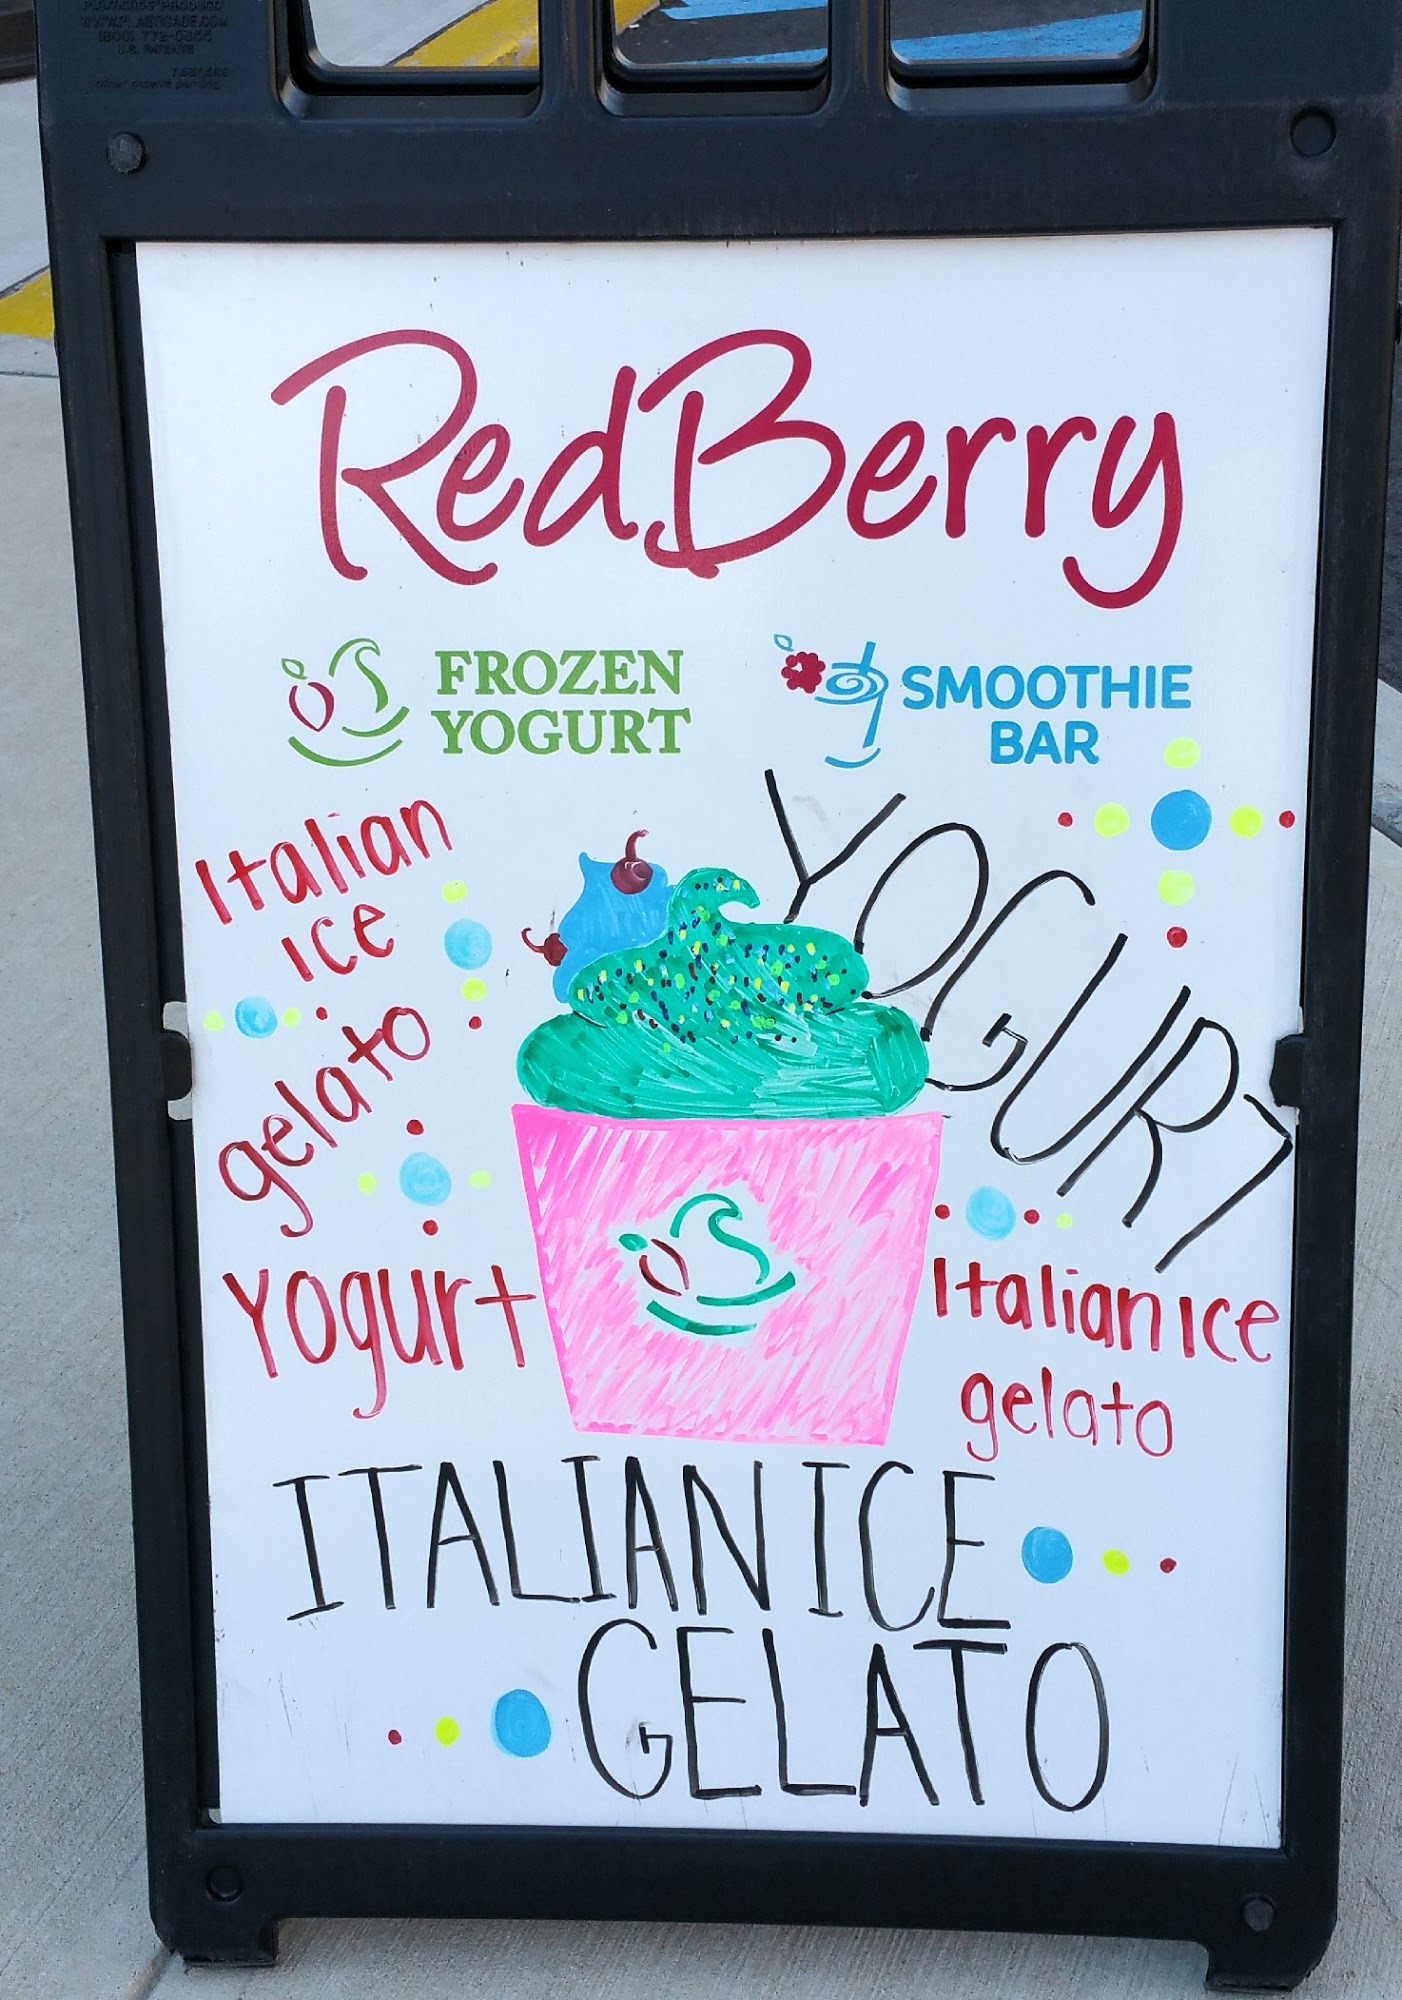 WWW.PLASTICADE.COM
U.S. PATENTS
other patents pending
RedBerry
FROZEN
YOGURT
SMOOTHIE
BAR
Italian
ice
gelato
Yogurt
YOGURT
Italian ice
gelato
ITALIAN ICE
GELATO